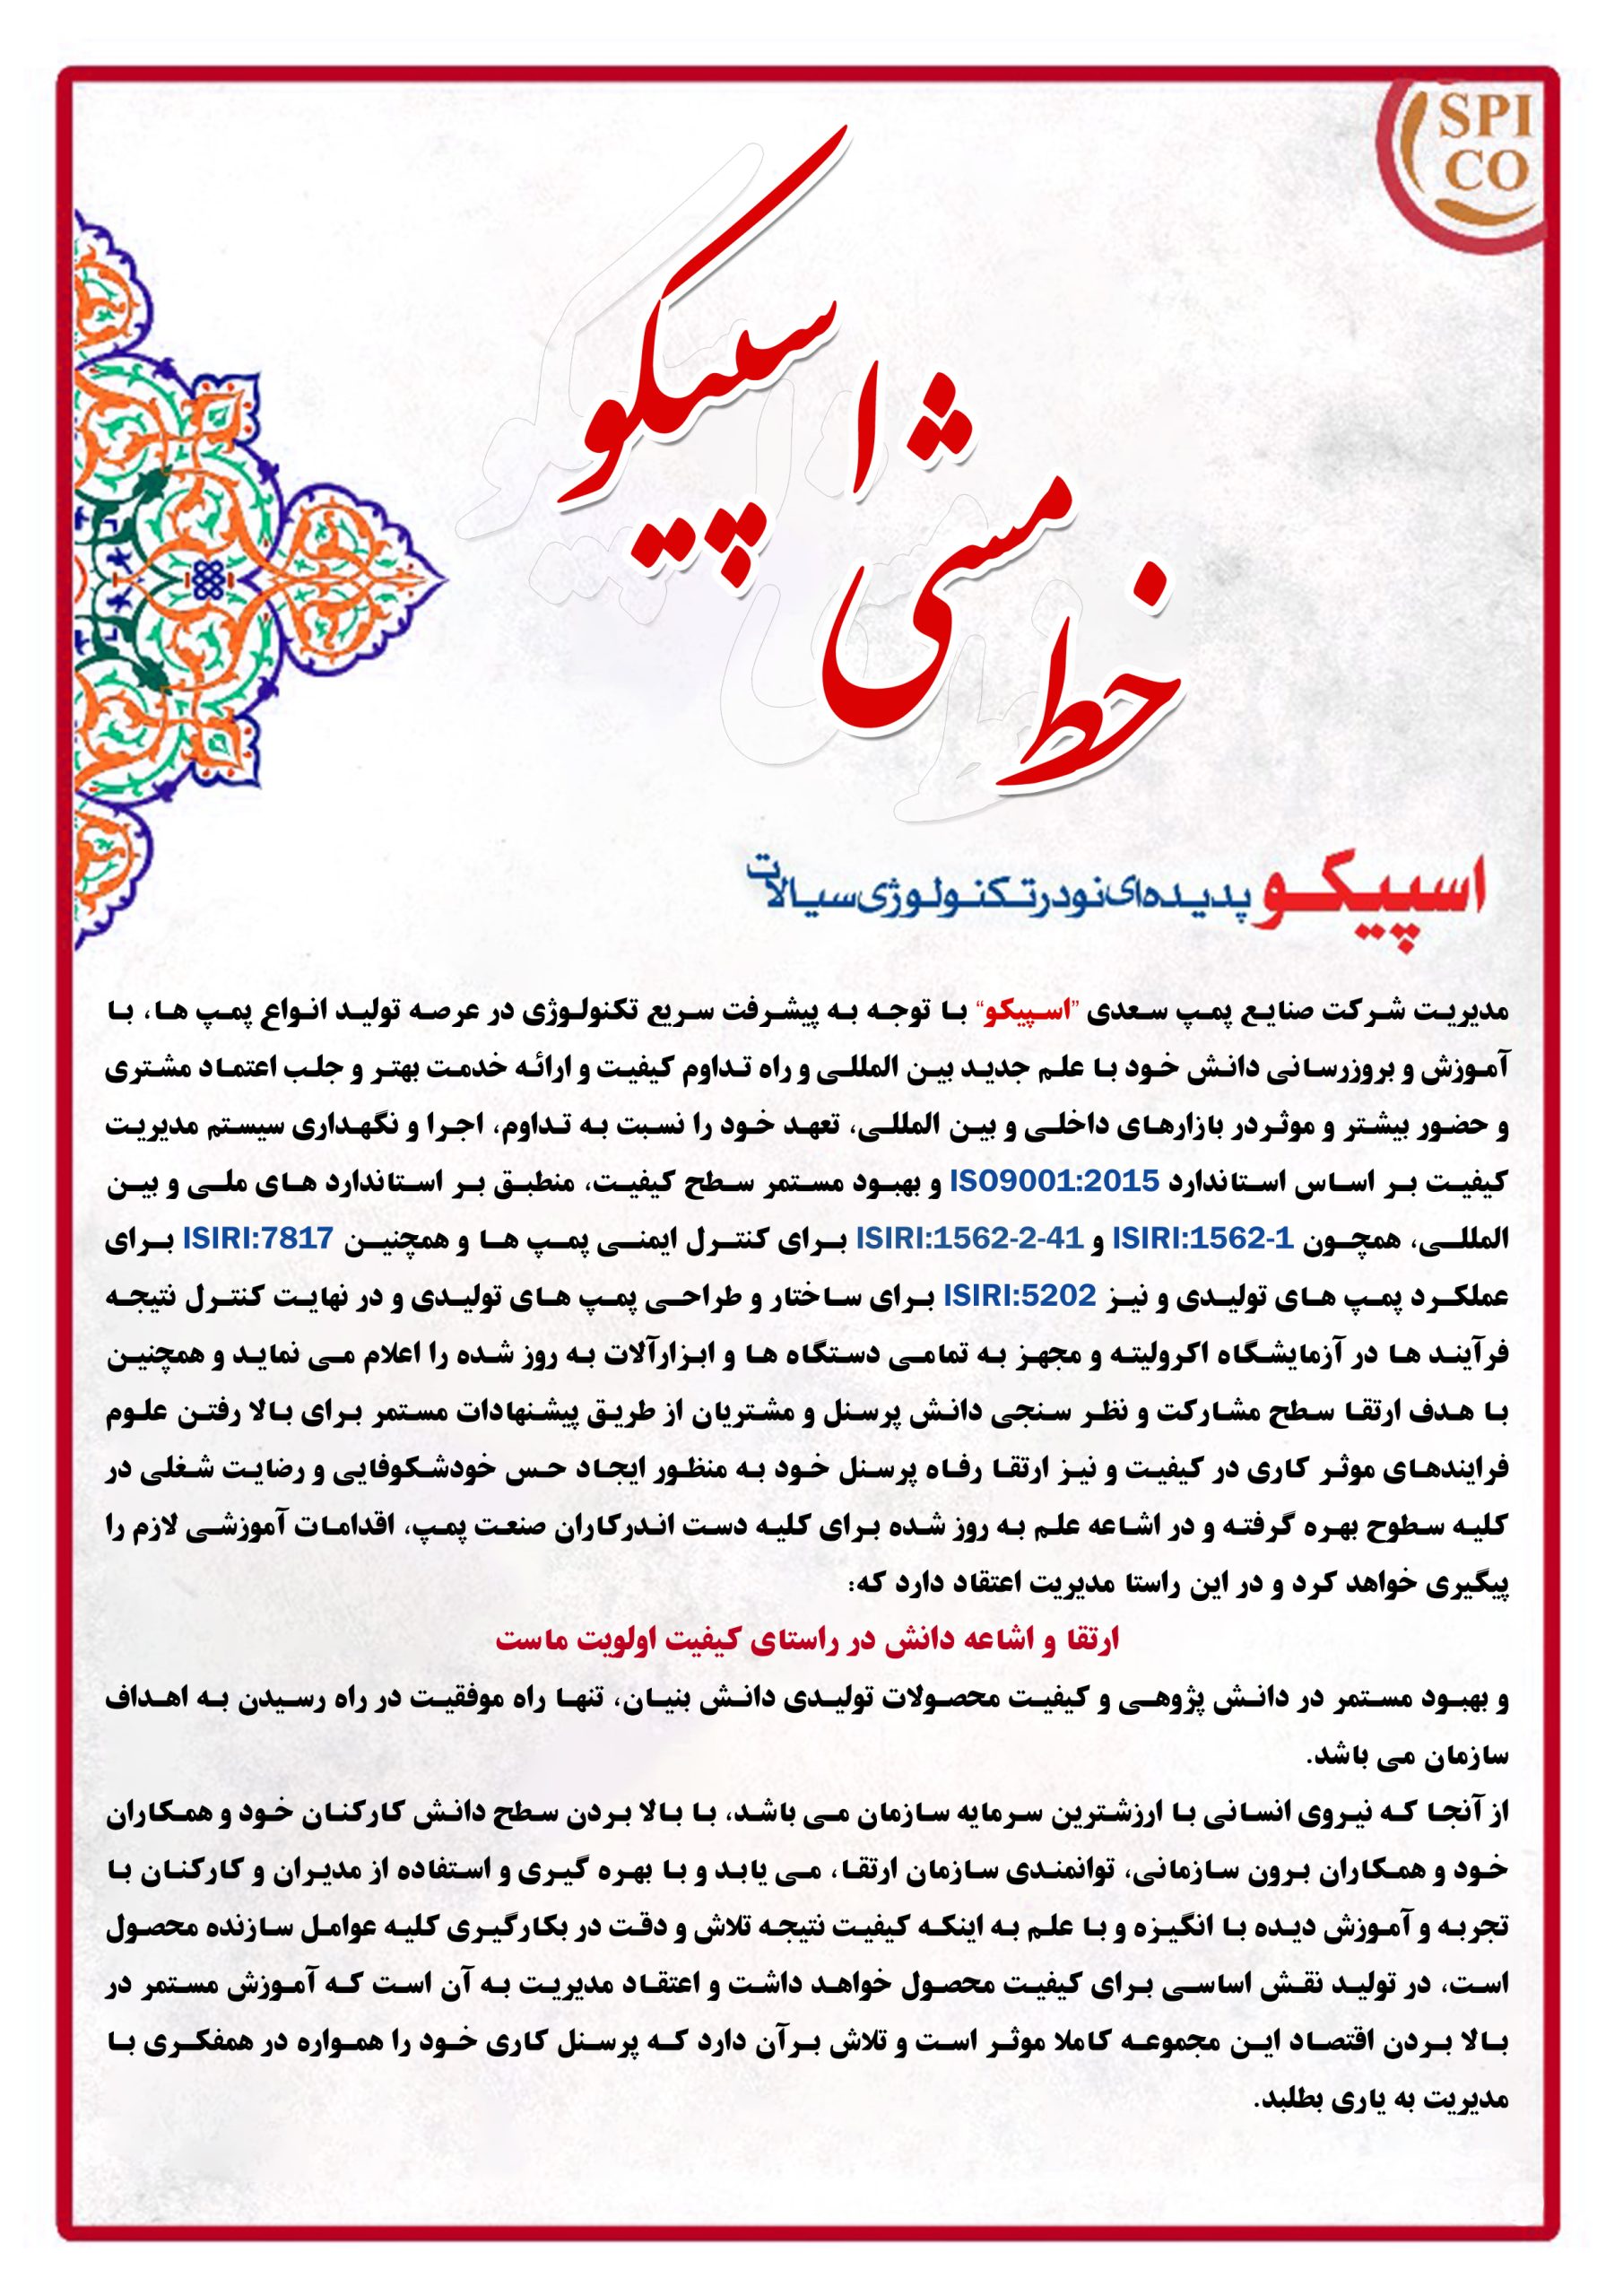 SPI
CO
خط مشی اسپیکو
اسپیکو پدیده‌ای نو در تکنولوژی سیالات
مدیریت شرکت صنایع پمپ سعدی "اسپیکو" با توجه به پیشرفت سریع تکنولوژی در عرصه تولید انواع پمپ ها، با
آموزش و بروزرسانی دانش خود با علم جدید بین المللی و راه تداوم کیفیت و ارائه خدمت بهتر و جلب اعتماد مشتری
و حضور بیشتر و موثردر بازارهای داخلی و بین المللی، تعهد خود را نسبت به تداوم، اجرا و نگهداری سیستم مدیریت
کیفیت بر اساس استاندارد ISO9001:2015 و بهبود مستمر سطح کیفیت، منطبق بر استاندارد های ملی و بین
المللی، همچون ISIRI:1562-1 و ISIRI:1562-2-41 برای کنترل ایمنی پمپ ها و همچنین ISIRI:7817 برای
عملکرد پمپ های تولیدی و نیز ISIRI:5202 برای ساختار و طراحی پمپ های تولیدی و در نهایت کنترل نتیجه
فرآیند ها در آزمایشگاه اکرولیته و مجهز به تمامی دستگاه ها و ابزارآلات به روز شده را اعلام می نماید و همچنین
با هدف ارتقا سطح مشارکت و نظر سنجی دانش پرسنل و مشتریان از طریق پیشنهادات مستمر برای بالا رفتن علوم
فرایندهای موثر کاری در کیفیت و نیز ارتقا رفاه پرسنل خود به منظور ایجاد حس خودشکوفایی و رضایت شغلی در
کلیه سطوح بهره گرفته و در اشاعه علم به روز شده برای کلیه دست اندرکاران صنعت پمپ، اقدامات آموزشی لازم را
پیگیری خواهد کرد و در این راستا مدیریت اعتقاد دارد که:
ارتقا و اشاعه دانش در راستای کیفیت اولویت ماست
و بهبود مستمر در دانش پژوهی و کیفیت محصولات تولیدی دانش بنیان، تنها راه موفقیت در راه رسیدن به اهداف
سازمان می باشد.
از آنجا که نیروی انسانی با ارزشترین سرمایه سازمان می باشد، با بالا بردن سطح دانش کارکنان خود و همکاران
خود و همکاران برون سازمانی، توانمندی سازمان ارتقا، می یابد و با بهره گیری و استفاده از مدیران و کارکنان با
تجربه و آموزش دیده با انگیزه و با علم به اینکه کیفیت نتیجه تلاش و دقت در بکارگیری کلیه عوامل سازنده محصول
است، در تولید نقش اساسی برای کیفیت محصول خواهد داشت و اعتقاد مدیریت به آن است که آموزش مستمر در
بالا بردن اقتصاد این مجموعه کاملا موثر است و تلاش برآن دارد که پرسنل کاری خود را همواره در همفکری با
مدیریت به یاری بطلبد.